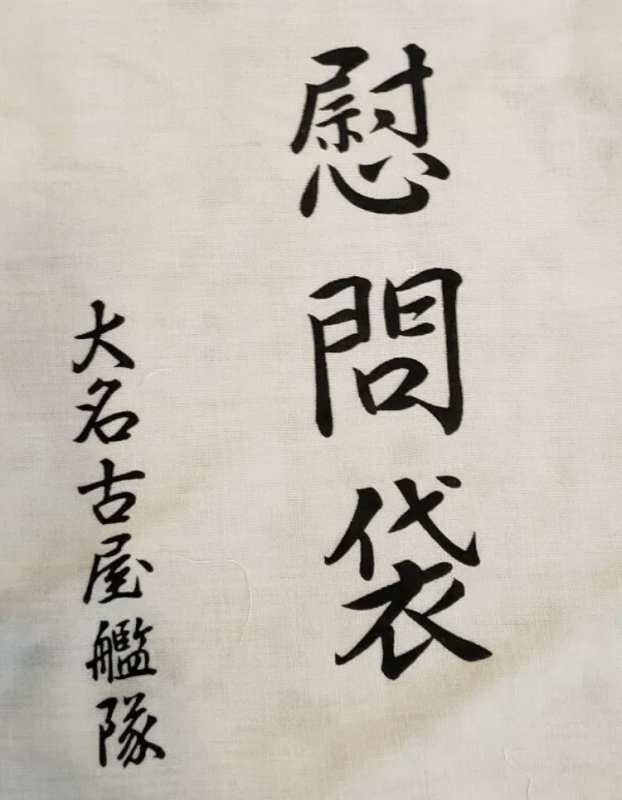 慰問袋
大名古屋艦隊